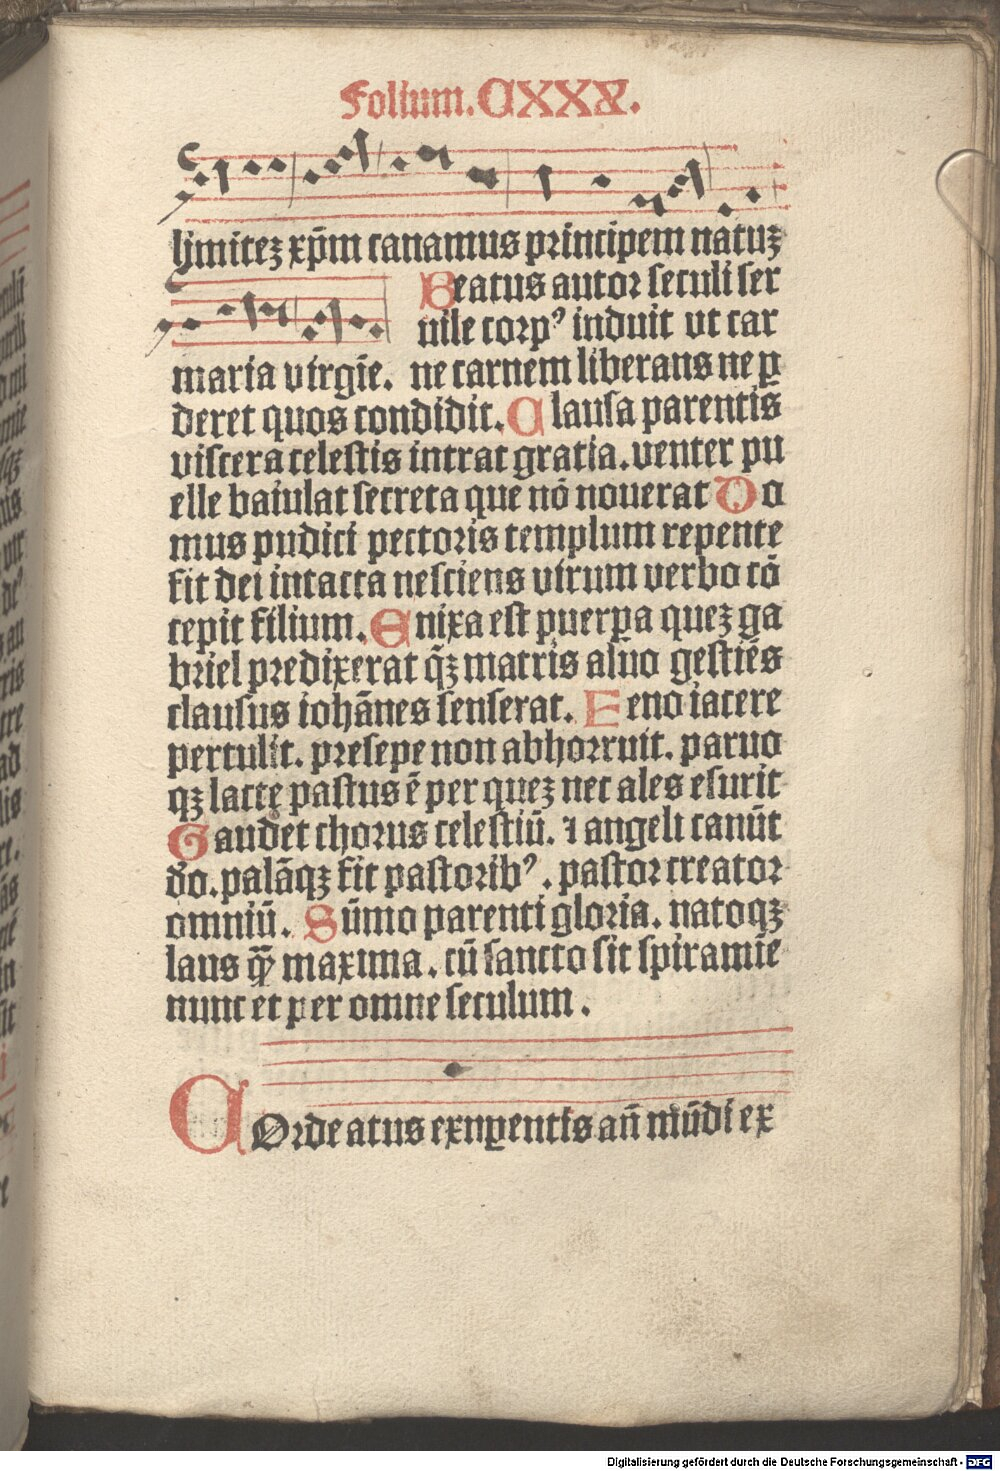 Folium. CXXX.
lymitez xp̄m canamus principem natuz
Beatus autor seculi ser
uile corpꝰ induit vt car
maria virgīe. ne carnem liberans ne ꝑ
deret quos condidit. Clausa parentis
viscera celestis intrat gratia. venter pu
elle baiulat secreta que nō nouerat Do
mus pudici pectoris templum repente
fit dei intacta nesciens virum verbo cō
cepit filium. Enixa est puerꝑa quez ga
briel predixerat q̄z matris aluo gestiēs
clausus iohānes senserat. Feno iacere
pertulit. presepe non abhorruit. paruo
qz lacte pastus ē per quez nec ales esurit
Gaudet chorus celestiū. ⁊ angeli canūt
do. palāqz fit pastoribꝰ. pastor creator
omniū. Sūmo parenti gloria. natoqz
laus qͣ̄ maxima. cū sancto sit spiramīe
nunc et per omne seculum.
COrde atus ex ꝑentis an̄ mūdi ex
Digitalisierung gefördert durch die Deutsche Forschungsgemeinschaft - DFG